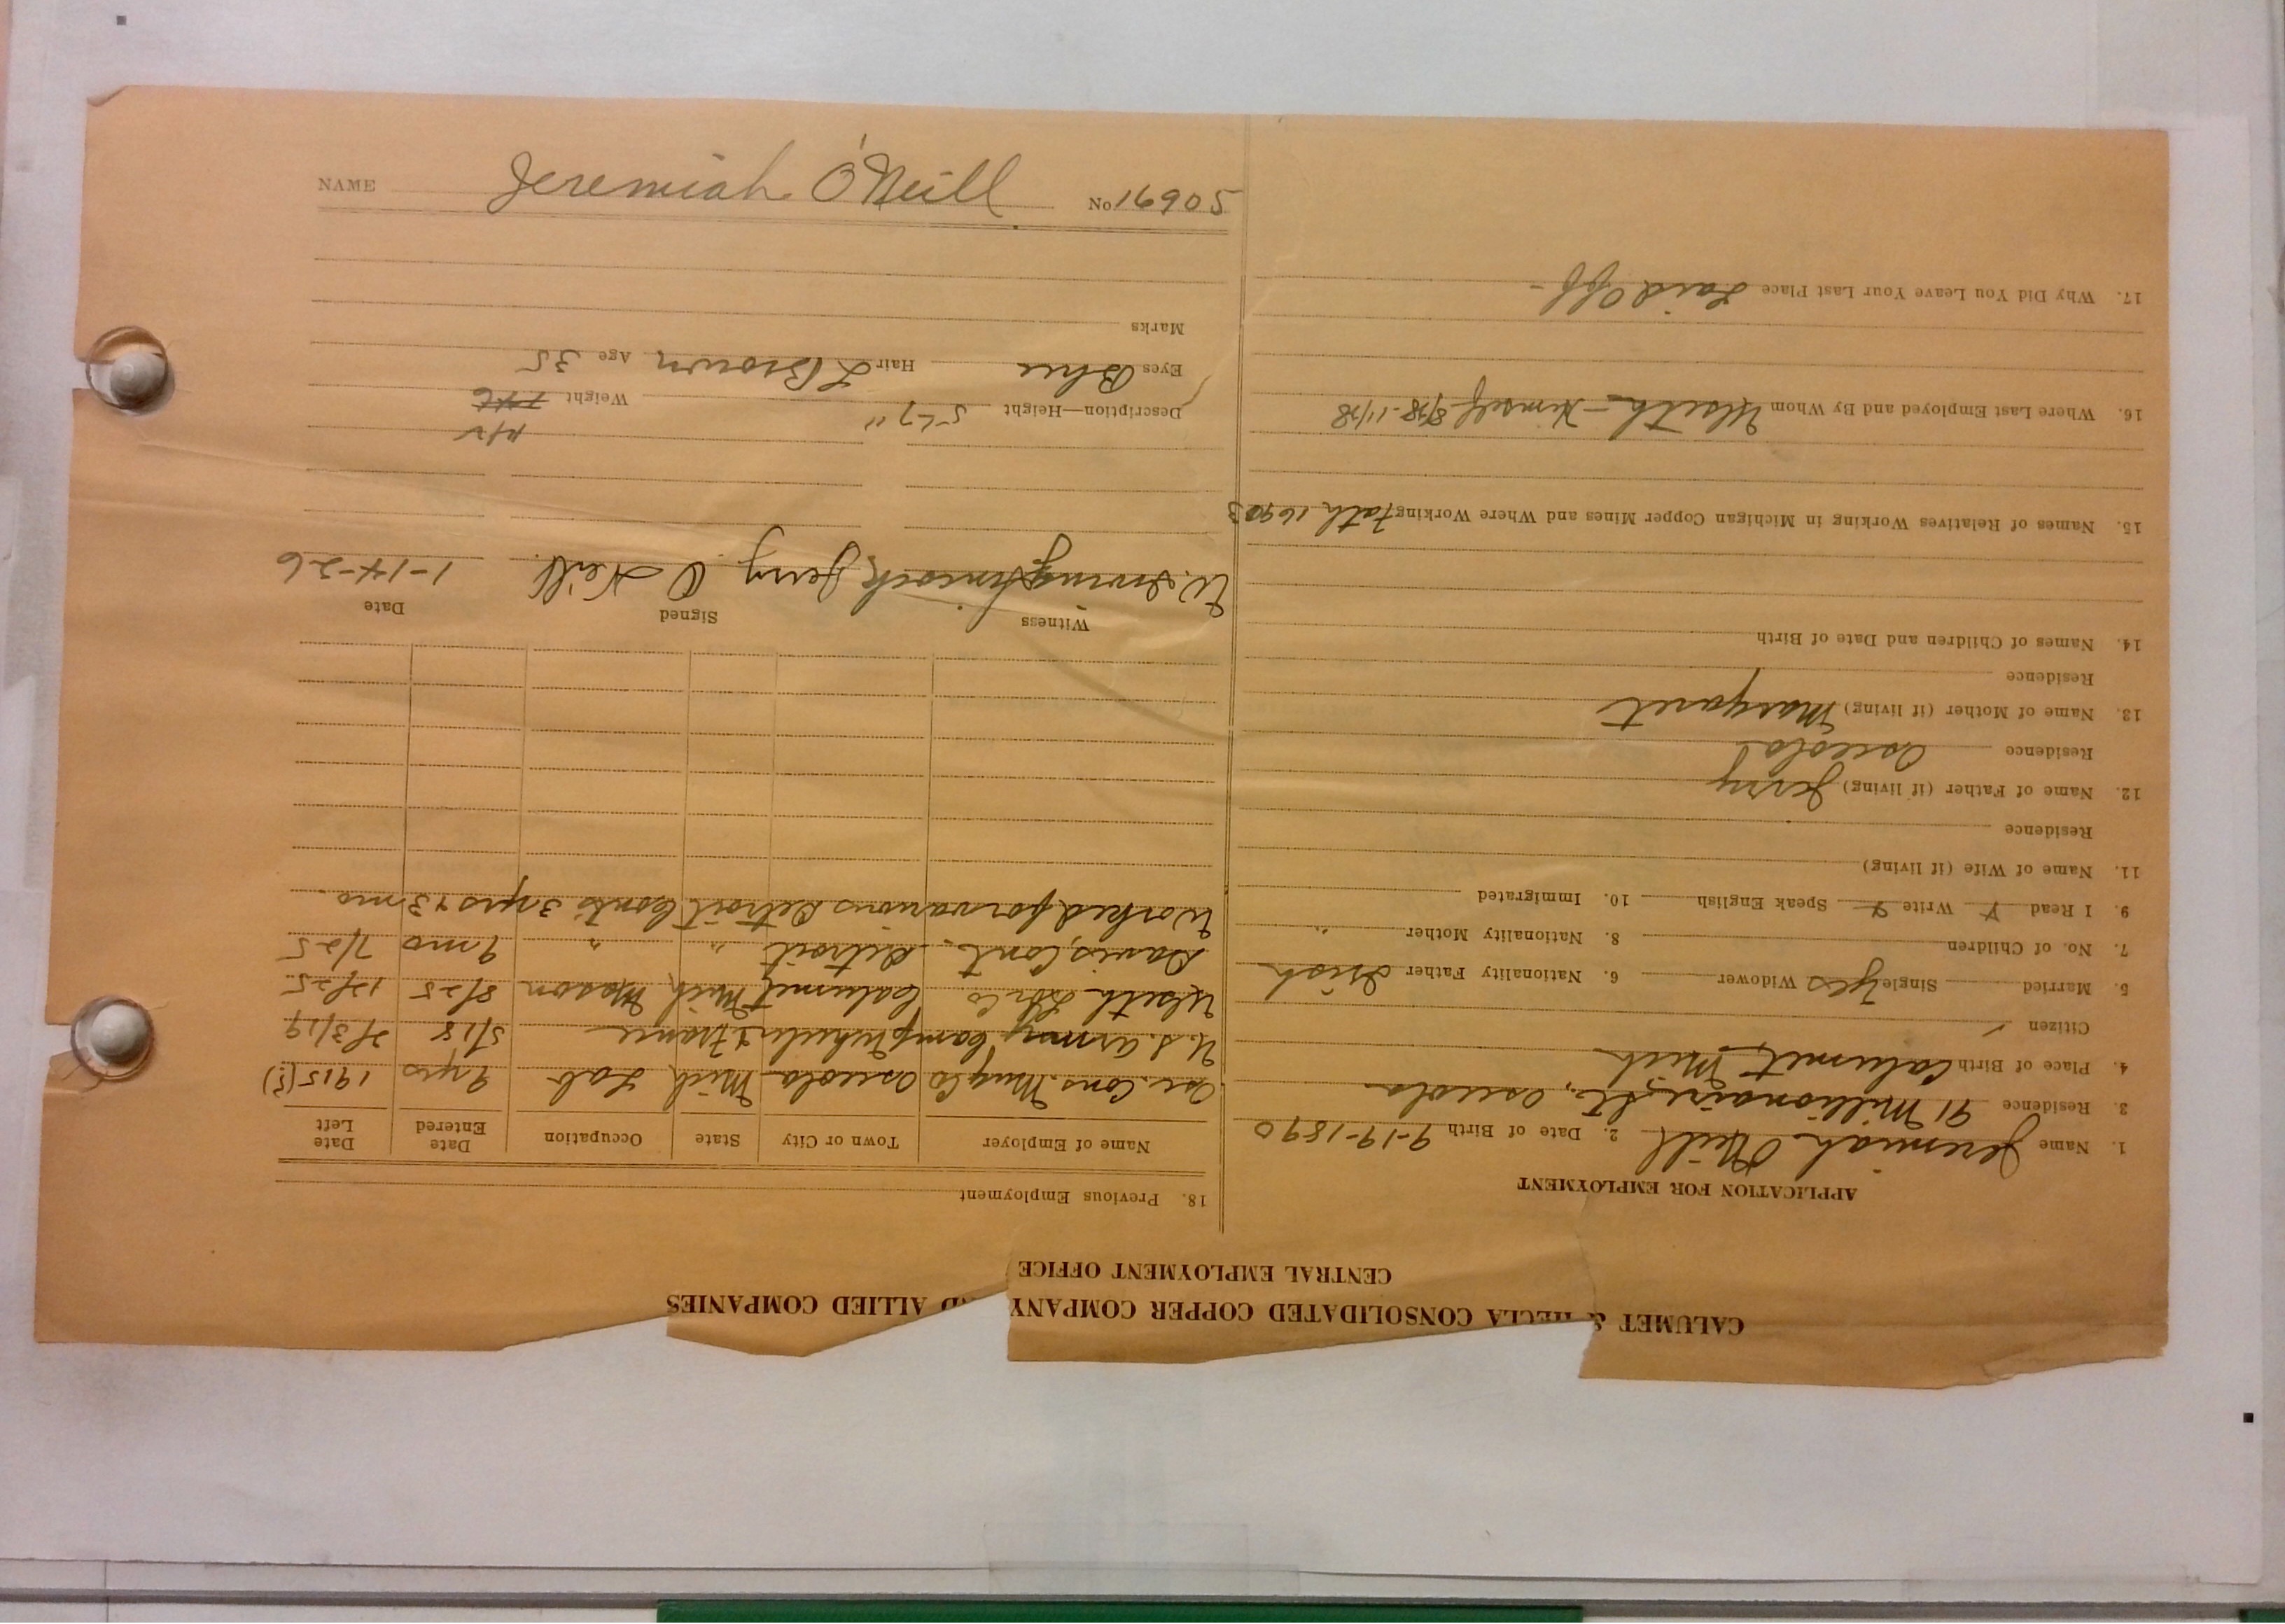 CALUMET & HECLA CONSOLIDATED COPPER COMPANY AND ALLIED COMPANIES
CENTRAL EMPLOYMENT OFFICE
APPLICATION FOR EMPLOYMENT
1. Name Jeremiah O'Neill 2. Date of Birth 9-19-1890
3. Residence 91 Millionaire St., Osceola
4. Place of Birth Calumet, Mich
Citizen ✓
5. Married Single yes Widower 6. Nationality Father Irish
7. No. of Children 8. Nationality Mother "
9. I Read Y Write Y Speak English 10. Immigrated
11. Name of Wife (if living)
Residence
12. Name of Father (if living) Jerry
Residence Osceola
13. Name of Mother (if living) Margaret
Residence
14. Names of Children and Date of Birth
15. Names of Relatives Working in Michigan Copper Mines and Where Working Fath 16903
16. Where Last Employed and By Whom Ulseth - Himself 8/28-11/28
17. Why Did You Leave Your Last Place Laid Off -
18. Previous Employment
Name of Employer Town or City State Occupation Date Entered Date Left
Osc. Cons. Mng Co Osceola Mich Lab 9 yrs 1915(?)
U.S. Army Camp Wheeler & France 5/18 2/3/19
Ulseth Lbr Co Calumet Mich Mason 8/25 12/25
Davis, Cont. Detroit " " 9 mo 7/25
Worked for various Detroit Cont's 3 yrs & 3 mo.
Witness Signed Date
W. Irving Jerry O Neill. 1-14-26
Description—Height 5-7" Weight 146
Eyes Blue Hair L Brown Age 35
Marks
NAME Jeremiah O'Neill No 16905